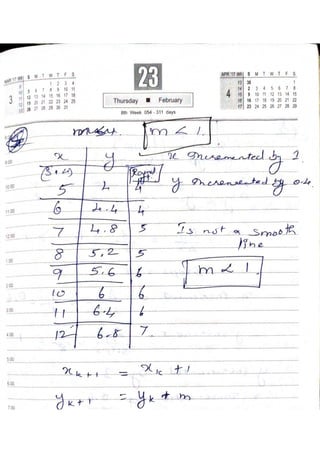 MAR '17 WK S M T W T F S
9 1 2 3 4
10 5 6 7 8 9 10 11
11 12 13 14 15 16 17 18
12 19 20 21 22 23 24 25
13 26 27 28 29 30 31
3
23
Thursday ■ February
8th Week 054 - 311 days
APR '17 WK S M T W T F S
13 30 1
14 2 3 4 5 6 7 8
15 9 10 11 12 13 14 15
16 16 17 18 19 20 21 22
17 23 24 25 26 27 28 29
4
m < 1.
x y Round off
(5,4)
5 4 4
6 4.4 4
7 4.8 5
8 5.2 5
9 5.6 6
10 6 6
11 6.4 6
12 6.8 7.
x incremented by 1.
y incremented by 0.4.
Is not a smooth
line
m < 1.
x k+1 = x k + 1
y k+1 = y k + m
9.00
10.00
11.00
12.00
1.00
2.00
3.00
4.00
5.00
6.00
7.00